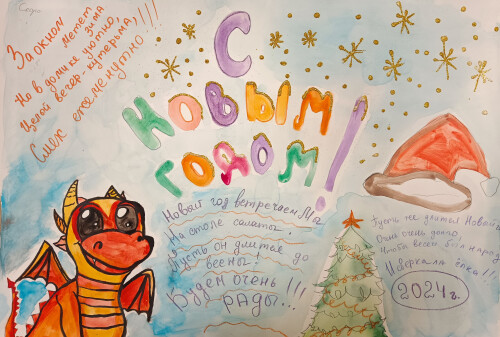 За окном метет зима
Но в домике уютно,
Целый вечер-кутерьма,
Смех ежеминутно!!!
С
Новым
годом!
Новый год встречаем мы
На столе салаты.
Пусть он длится до
весны!
Будем очень !!!
рады...
Пусть не длится Новый
очень долго
весел был народ
И сверкала ёлка!!
2024г.